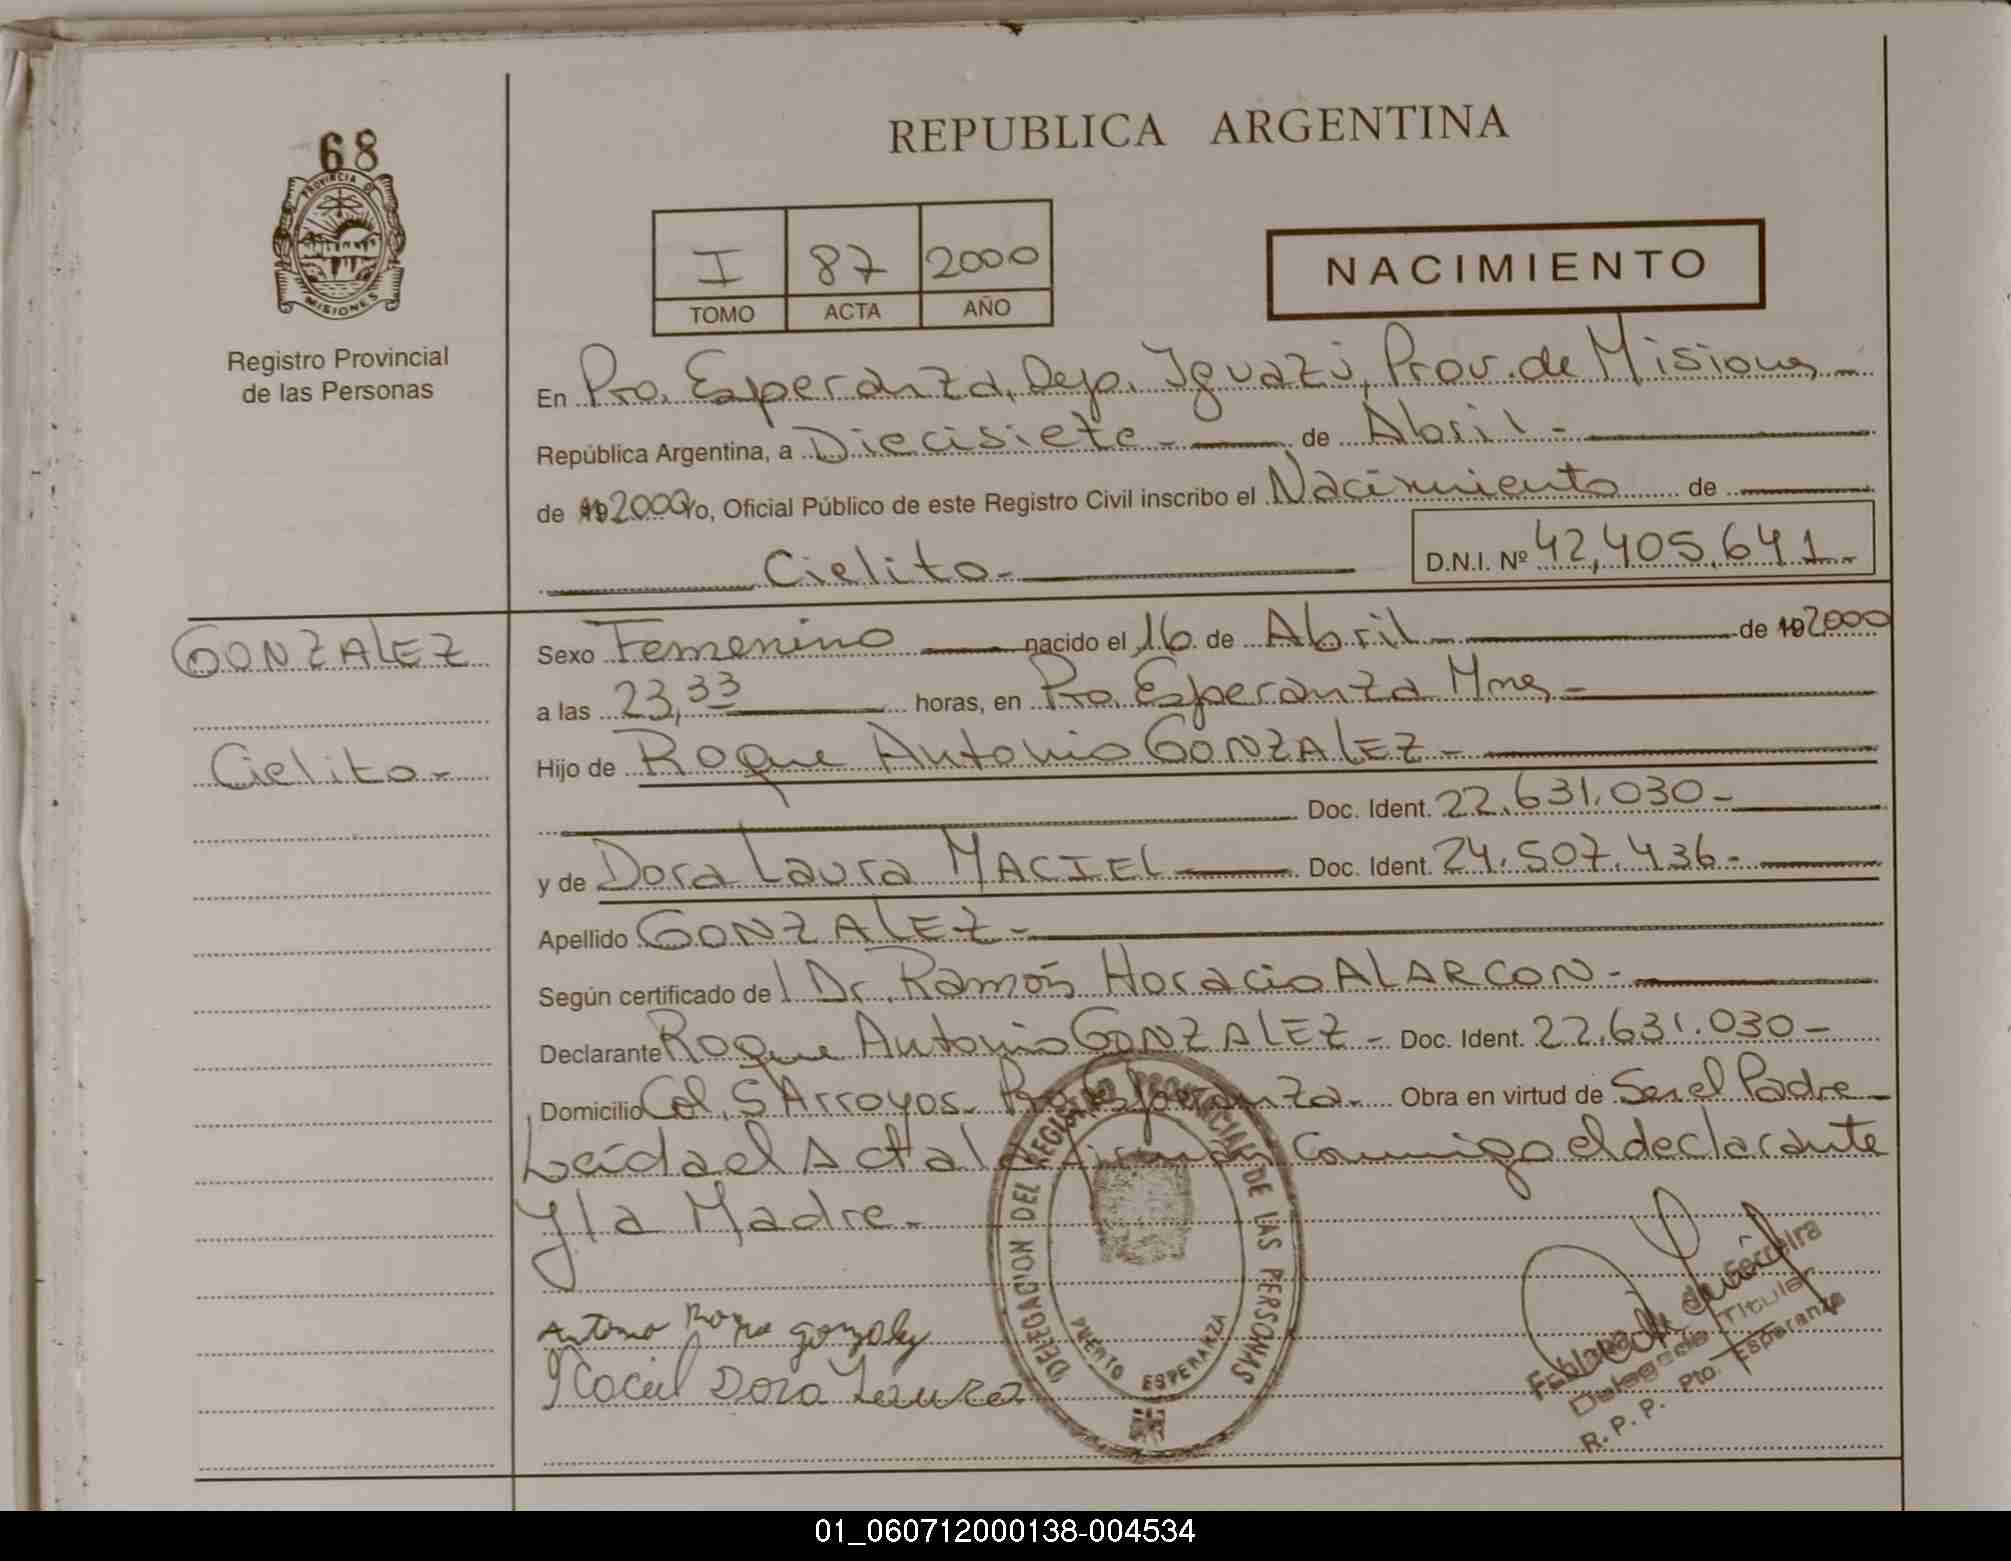 68
PROVINCIA DE
MISIONES
Registro Provincial
de las Personas
REPUBLICA ARGENTINA
I 87 2000
TOMO ACTA AÑO
NACIMIENTO
En Pto. Esperanza, Dep. Iguazú, Prov. de Misiones
República Argentina, a Diecisiete - de Abril -
de 192000 Yo, Oficial Público de este Registro Civil inscribo el Nacimiento de
Cielito - D.N.I. Nº 42,405,641.-
GONZALEZ
Cielito -
Sexo Femenino nacido el 16 de Abril - de 192000
a las 23,33 horas, en Pto. Esperanza Mnes -
Hijo de Roque Antonio GONZALEZ -
Doc. Ident. 22.631.030 -
y de Dora Laura MACIEL Doc. Ident. 24.507.436 -
Apellido GONZALEZ -
Según certificado del Dr. Ramón Horacio ALARCON -
Declarante Roque Antonio GONZALEZ - Doc. Ident. 22.631.030 -
Domicilio Col. 5 Arroyos - Pto. Esperanza - Obra en virtud de Ser el Padre -
Leída el Acta la firman conmigo el declarante
y la Madre -
Antonio Roque gonzalez
Maciel Dora Laura
DELEGACION DEL REGISTRO PROVINCIAL DE LAS PERSONAS
PUERTO ESPERANZA
de Ferreira
Delegada Titular
R. P. P. Pto. Esperanza
01_060712000138-004534